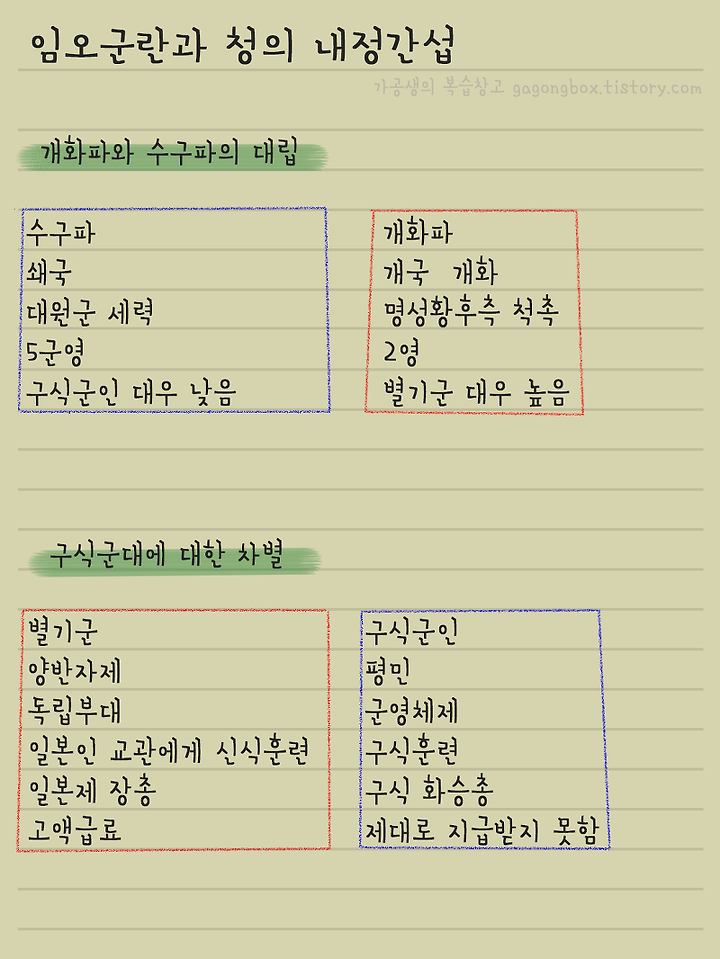 임오군란과 청의 내정간섭
가공생의 복습창고 gagongbox.tistory.com
개화파와 수구파의 대립
수구파
쇄국
대원군 세력
5군영
구식군인 대우 낮음
개화파
개국 개화
명성황후측 척족
2영
별기군 대우 높음
구식군대에 대한 차별
별기군
양반자제
독립부대
일본인 교관에게 신식훈련
일본제 장총
고액급료
구식군인
평민
군영체제
구식훈련
구식 화승총
제대로 지급받지 못함